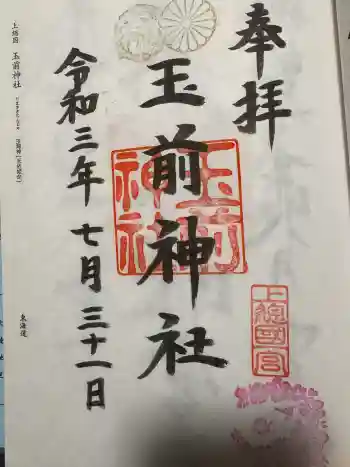 奉拝
玉前神社
令和三年七月三十一日
玉前神社
上総國一宮
上総国 玉前神社
東海道